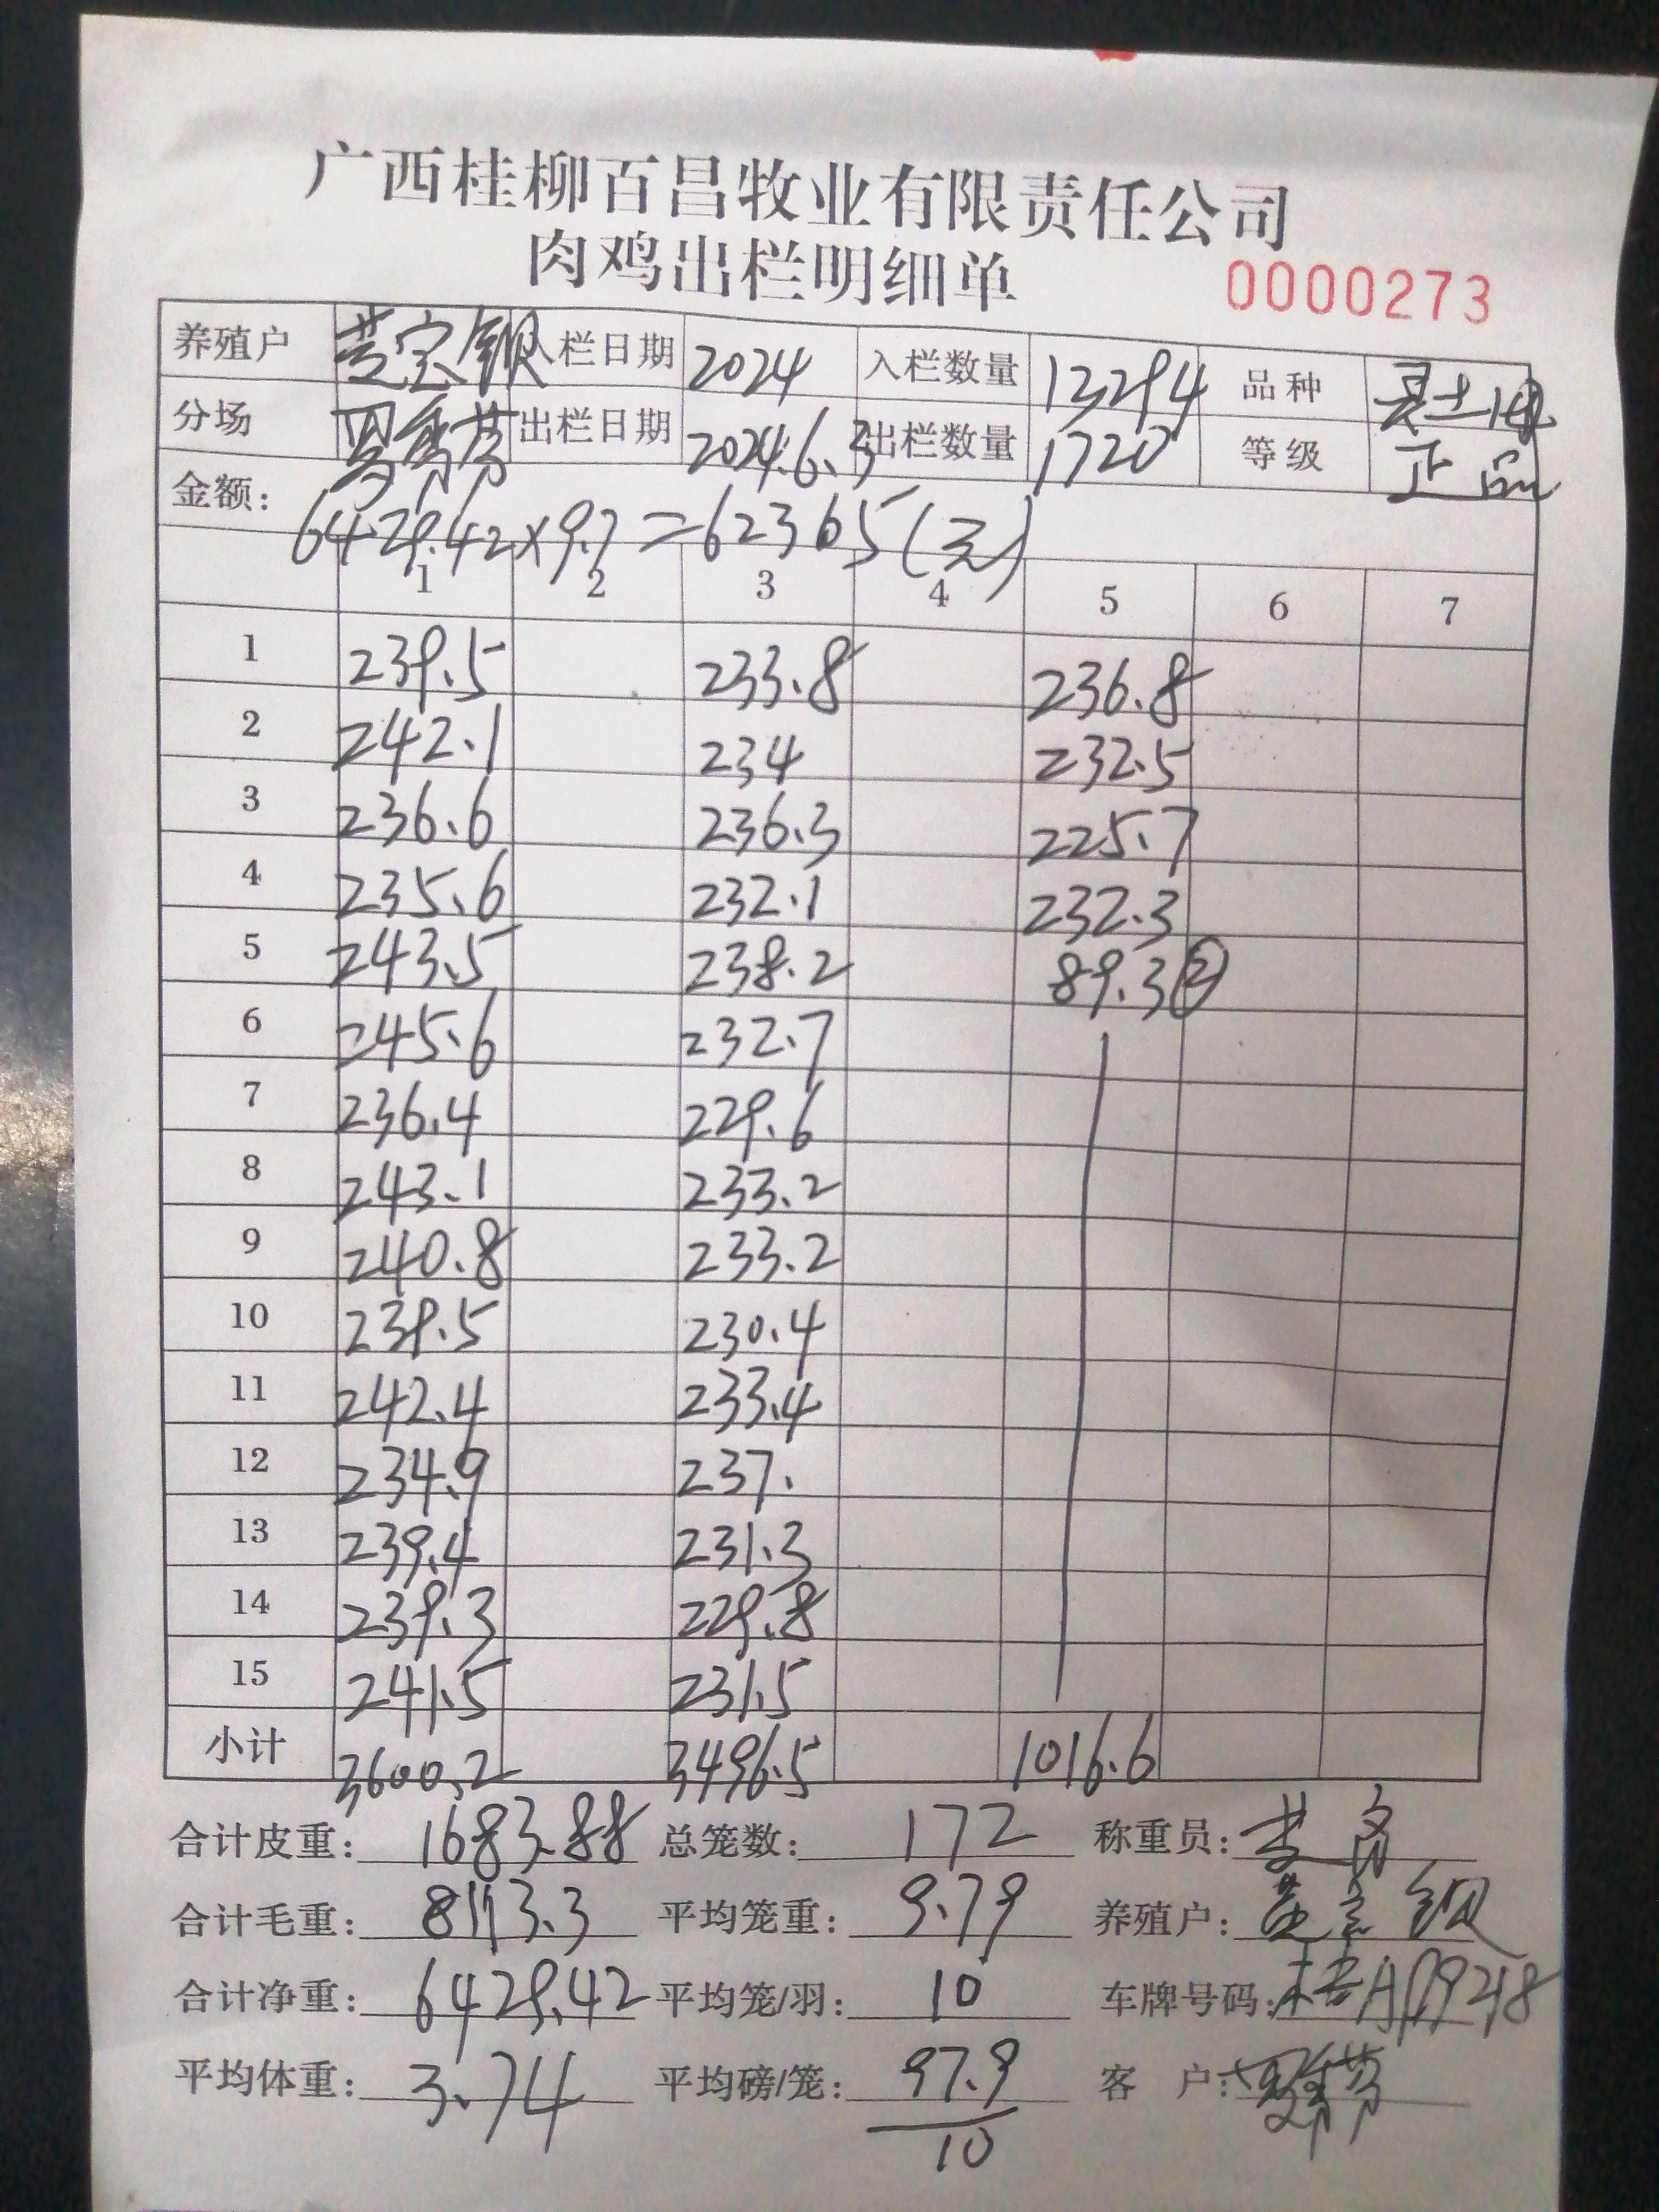 广西桂柳百昌牧业有限责任公司
肉鸡出栏明细单 0000273
养殖户 入栏日期 2024 入栏数量 13294 品种
分场 出栏日期 2024.6.3 出栏数量 1720 等级 正品
金额: 6429.42×9.7=62365(元)
1 2 3 4 5 6 7
1 239.5 233.8 236.8
2 242.1 234 232.5
3 236.6 236.3 225.7
4 235.6 232.1 232.3
5 243.5 238.2 89.3 ②
6 245.6 232.7
7 236.4 229.6
8 243.1 233.2
9 240.8 233.2
10 239.5 230.4
11 242.4 233.4
12 234.9 237.
13 239.4 231.3
14 239.3 229.8
15 241.5 231.5
小计 3600.2 3496.5 1016.6
合计皮重: 1683.88 总笼数: 172 称重员:
合计毛重: 8113.3 平均笼重: 9.79 养殖户:
合计净重: 6429.42 平均笼/羽: 10 车牌号码:
平均体重: 3.74 平均磅/笼: 97.9 客 户:
10